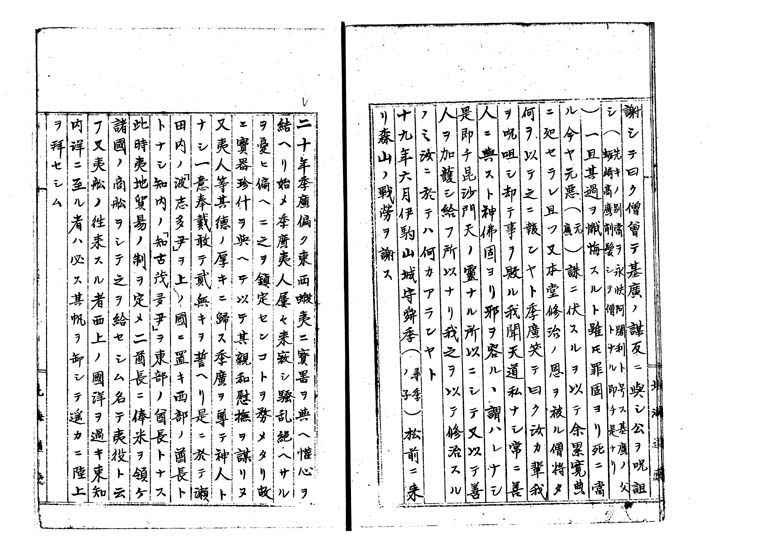 謝シテ曰ク僧曾テ基廣ノ謀反ニ與シ公ヲ呪詛
シ(先キノ別當ヲ永快阿闍梨ト号ス基廣ノ父
蛎崎高廣剃髪シテ價トナル即チ是ナリ
)一旦其過ヲ懺悔スルト雖トモ罪固ヨリ死ニ當
ル今ヤ元悪(元廣)誅ニ伏スルヲ以テ余累寛典
ニ処セラレ且ツ又本堂修治ノ恩ヲ被ル僧将タ
何ヲ以テ之ニ報ヒンヤト季廣笑テ曰ク汝カ輩我
ヲ呪咀シ却テ事ク敗ル我聞天道私ナシ常ニ善
人ニ與スト神佛固ヨリ邪ヲ容ルヽ謂ハレナシ
是即チ昆沙門天ノ霊ナル所以ニシテ又以テ善
人ヲ加護シ給フ所以ナリ我之ヲ以テ修治スル
ノミ汝ニ於テハ何カアランヤト
十九年六月伊駒山城守舜季(尋季ノ子)松前ニ来
リ森山ノ戦労ヲ謝ス
二十年季廣偏ク東西蝦夷ニ寶噐ヲ與ヘ懽心ヲ
結ヘリ始メ季廣夷人屢々来寇シ騒乱絶ヘサル
ヲ憂ヒ偏ヘニ之ヲ鎮定センコトヲ務メタリ故
ニ寳器珍什ヲ與ヘテ以テ其親和慰撫ヲ謀リヌ
又夷人等其徳ノ厚キニ歸ス季廣ヲ尊テ神人ト
ナシ一意奉戴敢テ貳無キヲ誓ヘリ是ニ於テ瀬
田内ノ「波志多尹」ヲ上ノ國ニ置キ西部ノ酋長ト
ナシ知内ノ「知古茂多尹」ヲ東部ノ酋長トナス
此時夷地貿易ノ制ヲ定メ二酋長ニ俸米ヲ領ケ
諸國ノ商舩ヲシテ之ヲ給セシム名テ夷役ト云
フ又夷舩ノ徃来スル者西上ノ國洋ヲ過キ東知
内洋ニ至ル者ハ必ス其帆ヲ卸シテ遥カニ陸上
ヲ拜セシム